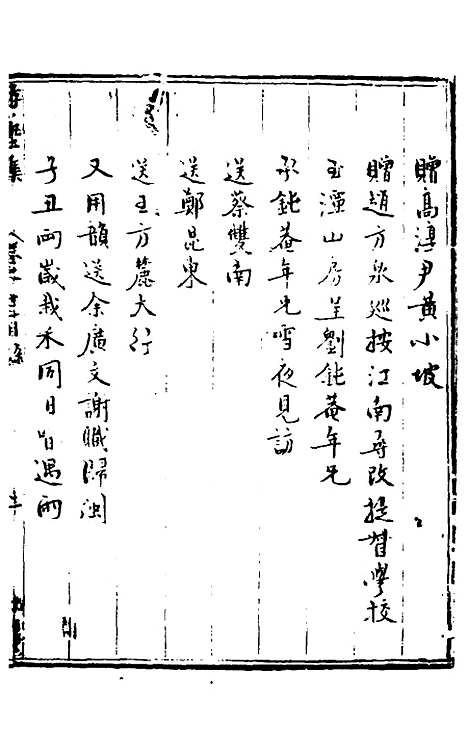 贈高淳尹黃小坡
贈趙方泉巡按江南尋改提督學校
玉潭山房呈劉鈍菴年兄
承鈍菴年兄雪夜見訪
送蔡雙南
送鄭昆東
送王方麓大行
又用韻送余廣文謝職歸閩
子丑兩歲栽禾同日皆遇雨